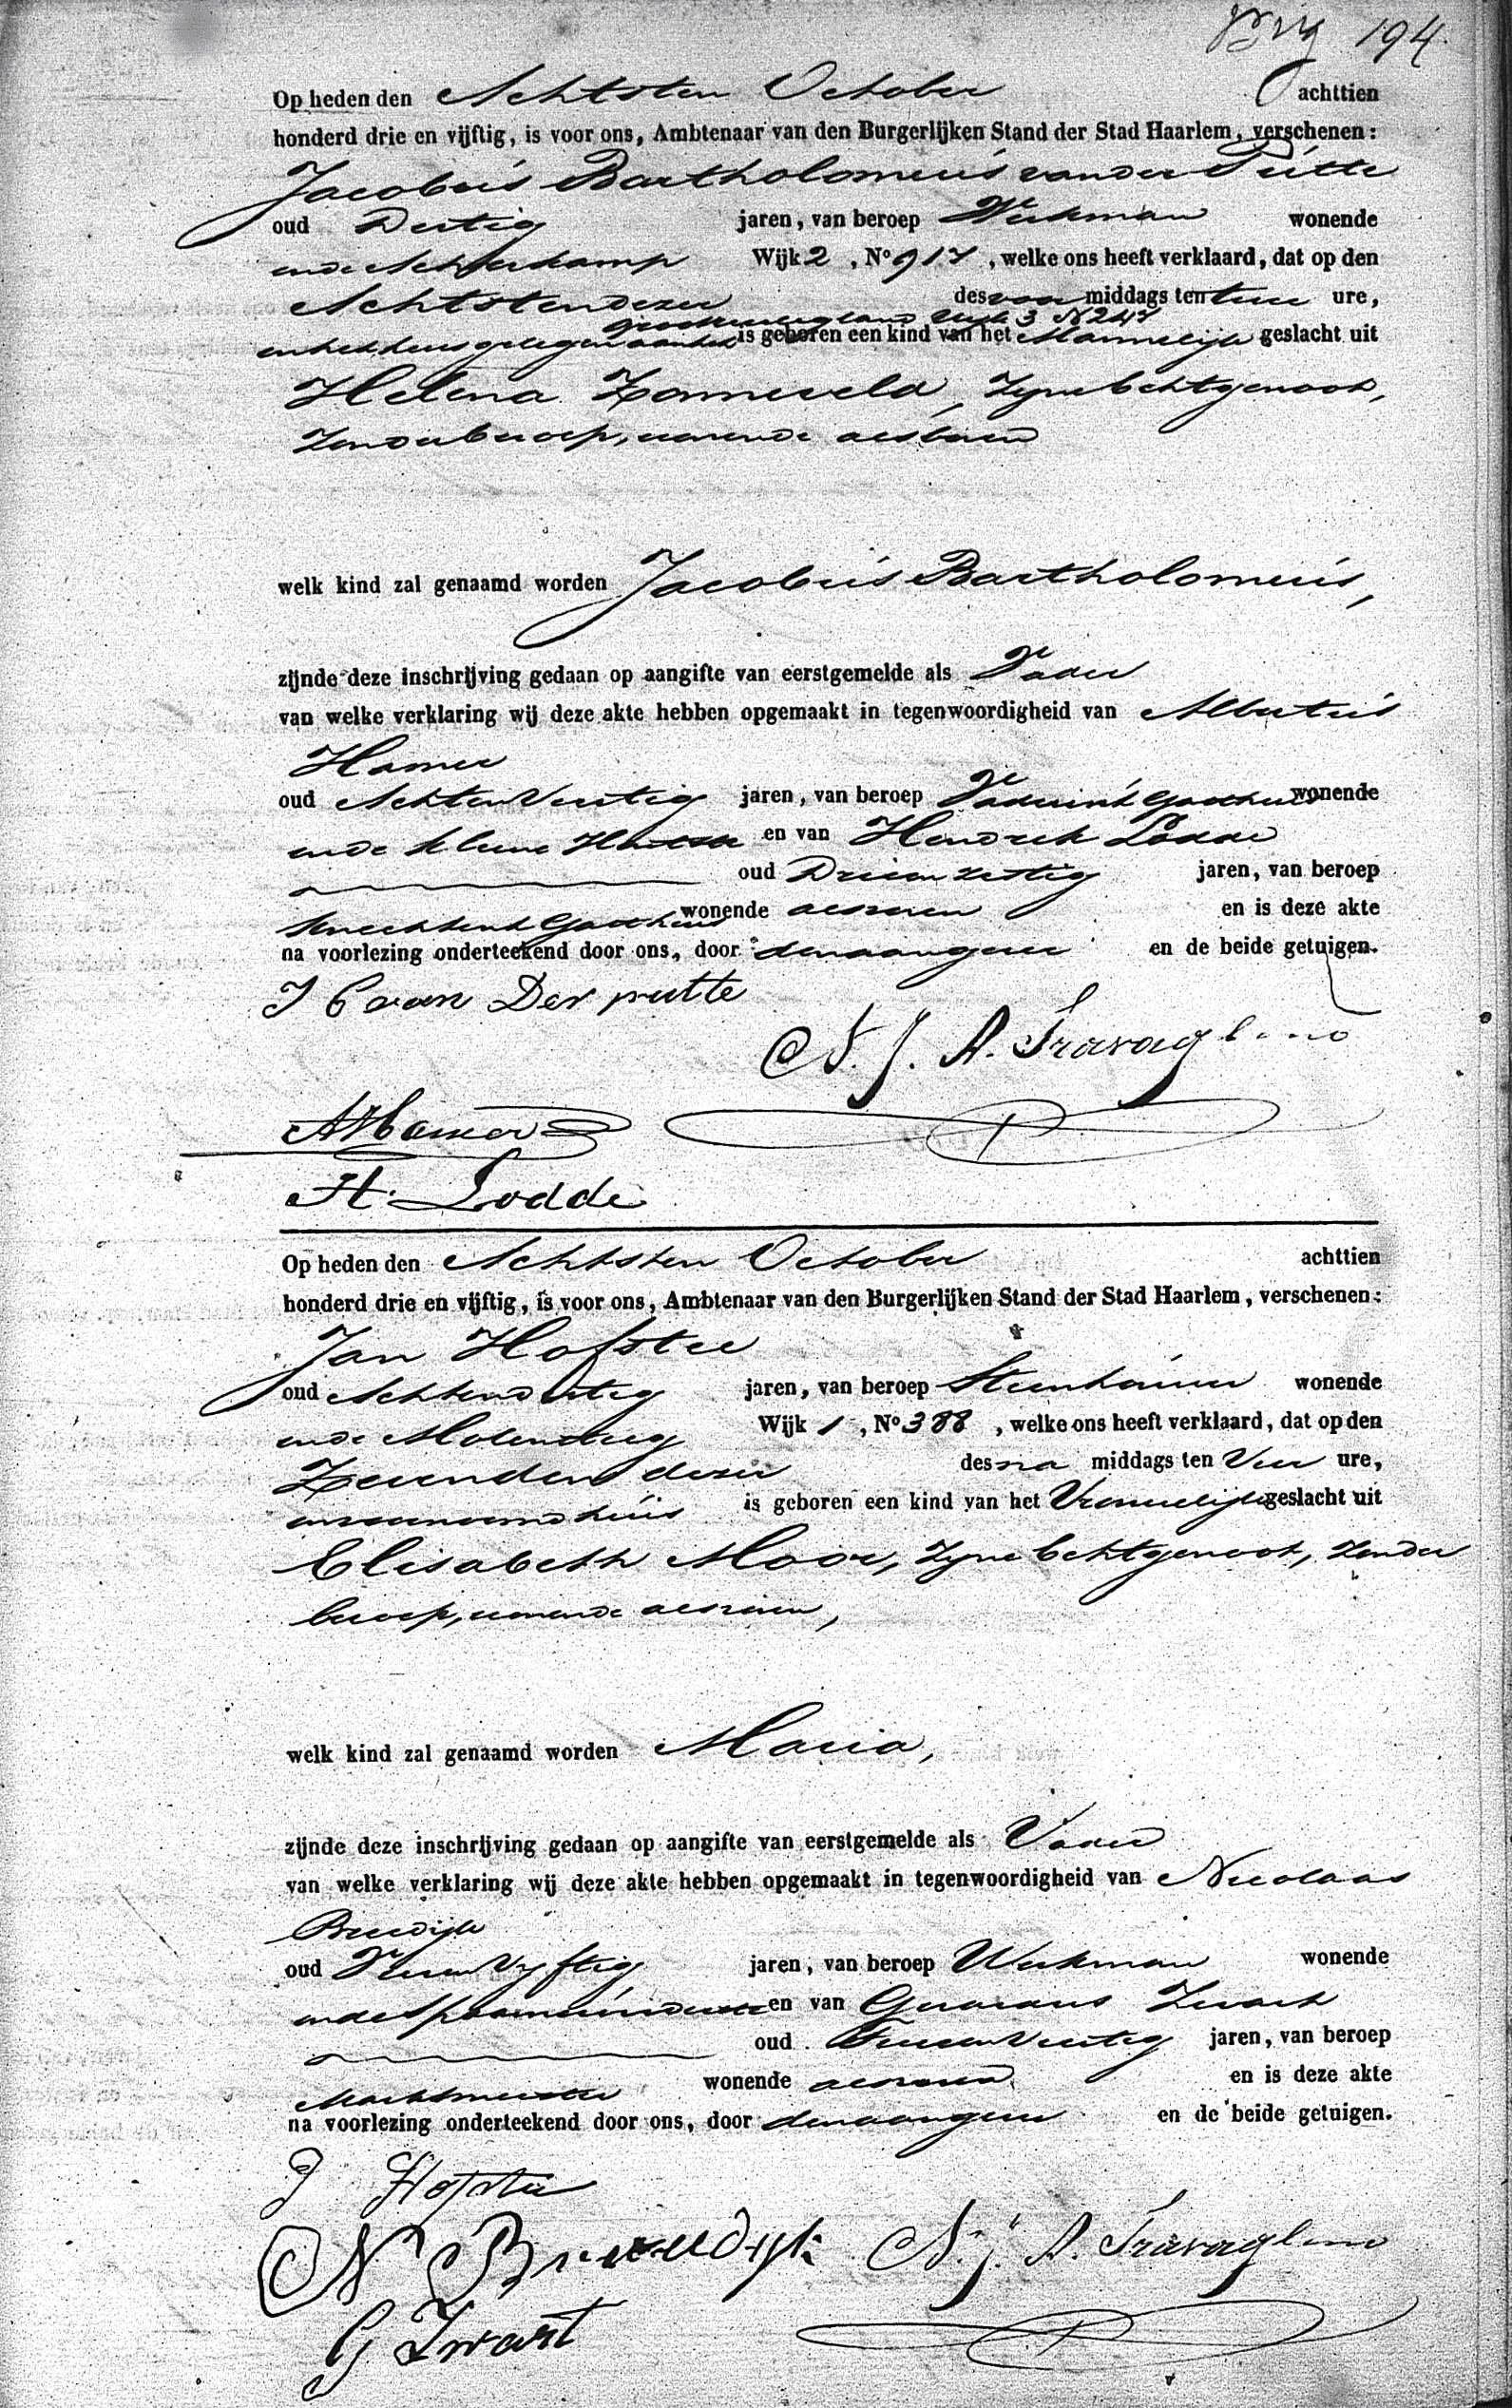 194
Op heden den Achtsten October achttien
honderd drie en vijftig, is voor ons, Ambtenaar van den Burgerlijken Stand der Stad Haarlem, verschenen:
Jacobus Bartholomeus van der Putte
oud Dertig jaren, van beroep Werkman wonende
in de Achterkamp Wijk 2, No 917, welke ons heeft verklaard, dat op den
Achtsten dezer des voor middags ten twee ure,
Wijk 3 N 247
in het huis gelegen aan het is geboren een kind van het Mannelijk geslacht uit
Helena Zonneveld, Zyne Echtgenoot,
Zonder beroep, wonende aldaar
welk kind zal genaamd worden Jacobus Bartholomeus,
zijnde deze inschrijving gedaan op aangifte van eerstgemelde als Vader
van welke verklaring wij deze akte hebben opgemaakt in tegenwoordigheid van Albertus
Hamer
oud Acht en Veertig jaren, van beroep wonende
in de kleine Houtstr en van Hendrik Lodde
oud Drie en zestig jaren, van beroep
wonende aldaar en is deze akte
na voorlezing onderteekend door ons, door den aangever en de beide getuigen.
J B van Der putte
N. J. A. Travaglino
A Hamer
H. Lodde
Op heden den Achtsten October achttien
honderd drie en vijftig, is voor ons, Ambtenaar van den Burgerlijken Stand der Stad Haarlem, verschenen:
Jan Hofstee
oud Acht en dertig jaren, van beroep Steenhouwer wonende
in de Molensteeg Wijk 1, No 388, welke ons heeft verklaard, dat op den
Zevenden dezer des na middags ten Vier ure,
in voornoemd huis is geboren een kind van het Vrouwelijk geslacht uit
Elisabeth Mooi, Zyne Echtgenoot, Zonder
beroep, wonende aldaar,
welk kind zal genaamd worden Maria,
zijnde deze inschrijving gedaan op aangifte van eerstgemelde als Vader
van welke verklaring wij deze akte hebben opgemaakt in tegenwoordigheid van Nicolaas
oud Vyftig jaren, van beroep Werkman wonende
in de en van Gerardus Zwart
oud Veertig jaren, van beroep
wonende aldaar en is deze akte
na voorlezing onderteekend door ons, door den aangever en de beide getuigen.
J Hofstee
N N. J. A. Travaglino
G Zwart